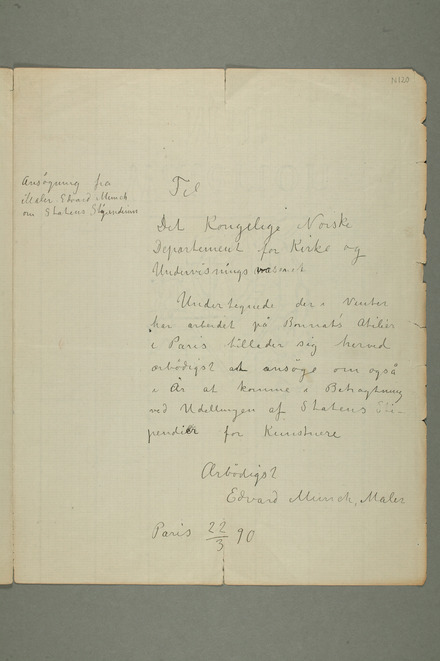 N120
Ansøgning fra
Maler Edvard Munch
om Statens Stipendium
Til
Det Kongelige Norske
Departement for Kirke og
Undervisnings
Undertegnede der i Vinter
har arbeidet på Bonnats Atelier
i Paris tillader sig herved
ærbödigst at ansöge om også
i År at komme i Betragtning
ved Udellingen af Statens Sti-
pendier for Kunstnere
Ærbödigst
Edvard Munch, Maler
Paris 22/3 90